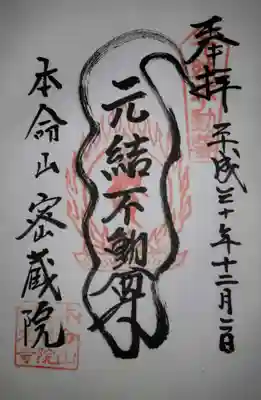 奉拝
平成三十年十二月二日
元結不動尊
本命山
密蔵院